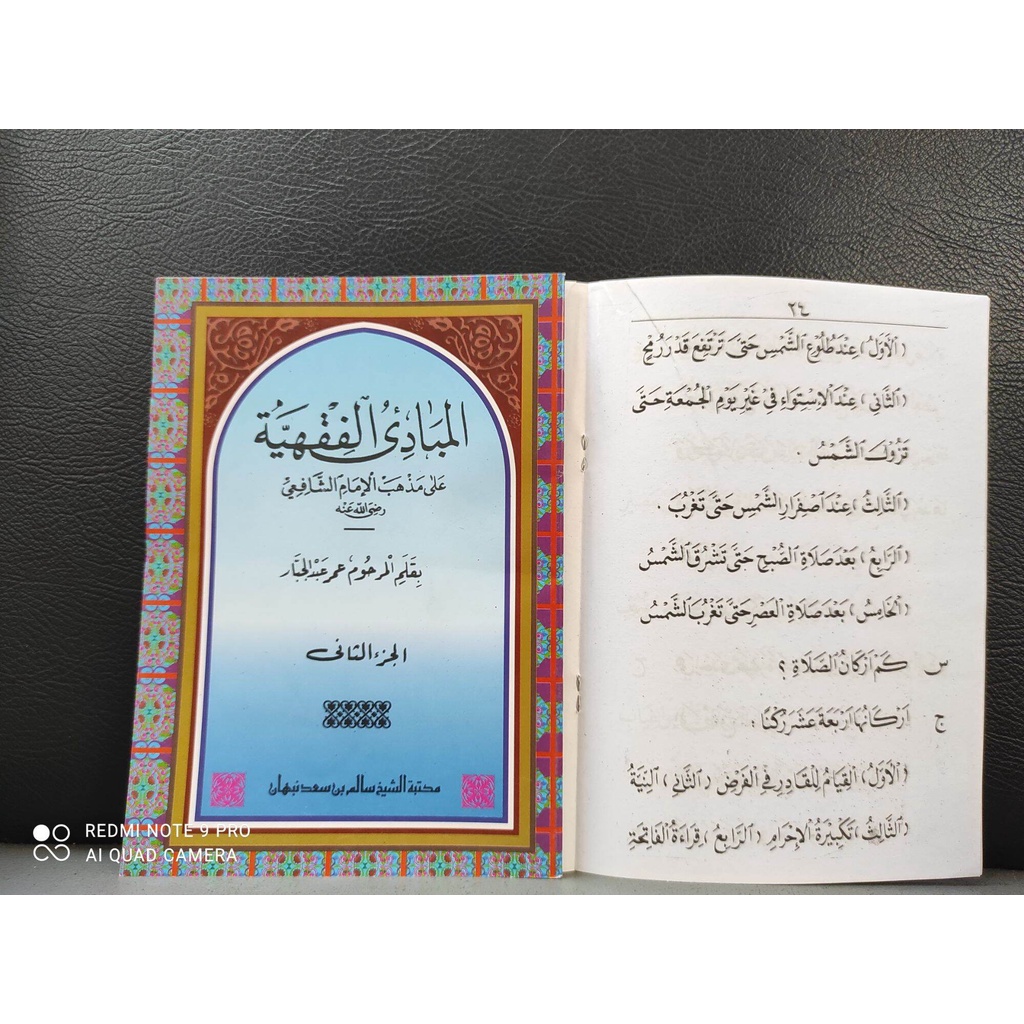 المبادئ الفقهية
على مذهب الإمام الشافعي
رضي الله عنه
بقلم المرحوم عمر عبد الجبار
الجزء الثاني
مكتبة الشيخ سالم بن سعد نبهان
٢٤
(اَلْأَوَّلُ) عِنْدَ طُلُوْعِ الشَّمْسِ حَتَّى تَرْتَفِعَ قَدْرَ رُمْحٍ
(اَلثَّانِي) عِنْدَ الْاِسْتِوَاءِ فِيْ غَيْرِ يَوْمِ الْجُمُعَةِ حَتَّى
تَزُوْلَ الشَّمْسُ .
(اَلثَّالِثُ) عِنْدَ اصْفِرَارِ الشَّمْسِ حَتَّى تَغْرُبَ .
(اَلرَّابِعُ) بَعْدَ صَلَاةِ الصُّبْحِ حَتَّى تَشْرُقَ الشَّمْسُ
(اَلْخَامِسُ) بَعْدَ صَلَاةِ الْعَصْرِ حَتَّى تَغْرُبَ الشَّمْسُ
س كَمْ اَرْكَانُ الصَّلَاةِ ؟
ج اَرْكَانُهَا اَرْبَعَةَ عَشَرَ رُكْنًا :
(اَلْأَوَّلُ) اَلْقِيَامُ لِلْقَادِرِ فِي الْفَرْضِ (اَلثَّانِي) اَلنِّيَّةُ
(اَلثَّالِثُ) تَكْبِيْرَةُ الْإِحْرَامِ (اَلرَّابِعُ) قِرَاءَةُ الْفَاتِحَةِ
REDMI NOTE 9 PRO
AI QUAD CAMERA